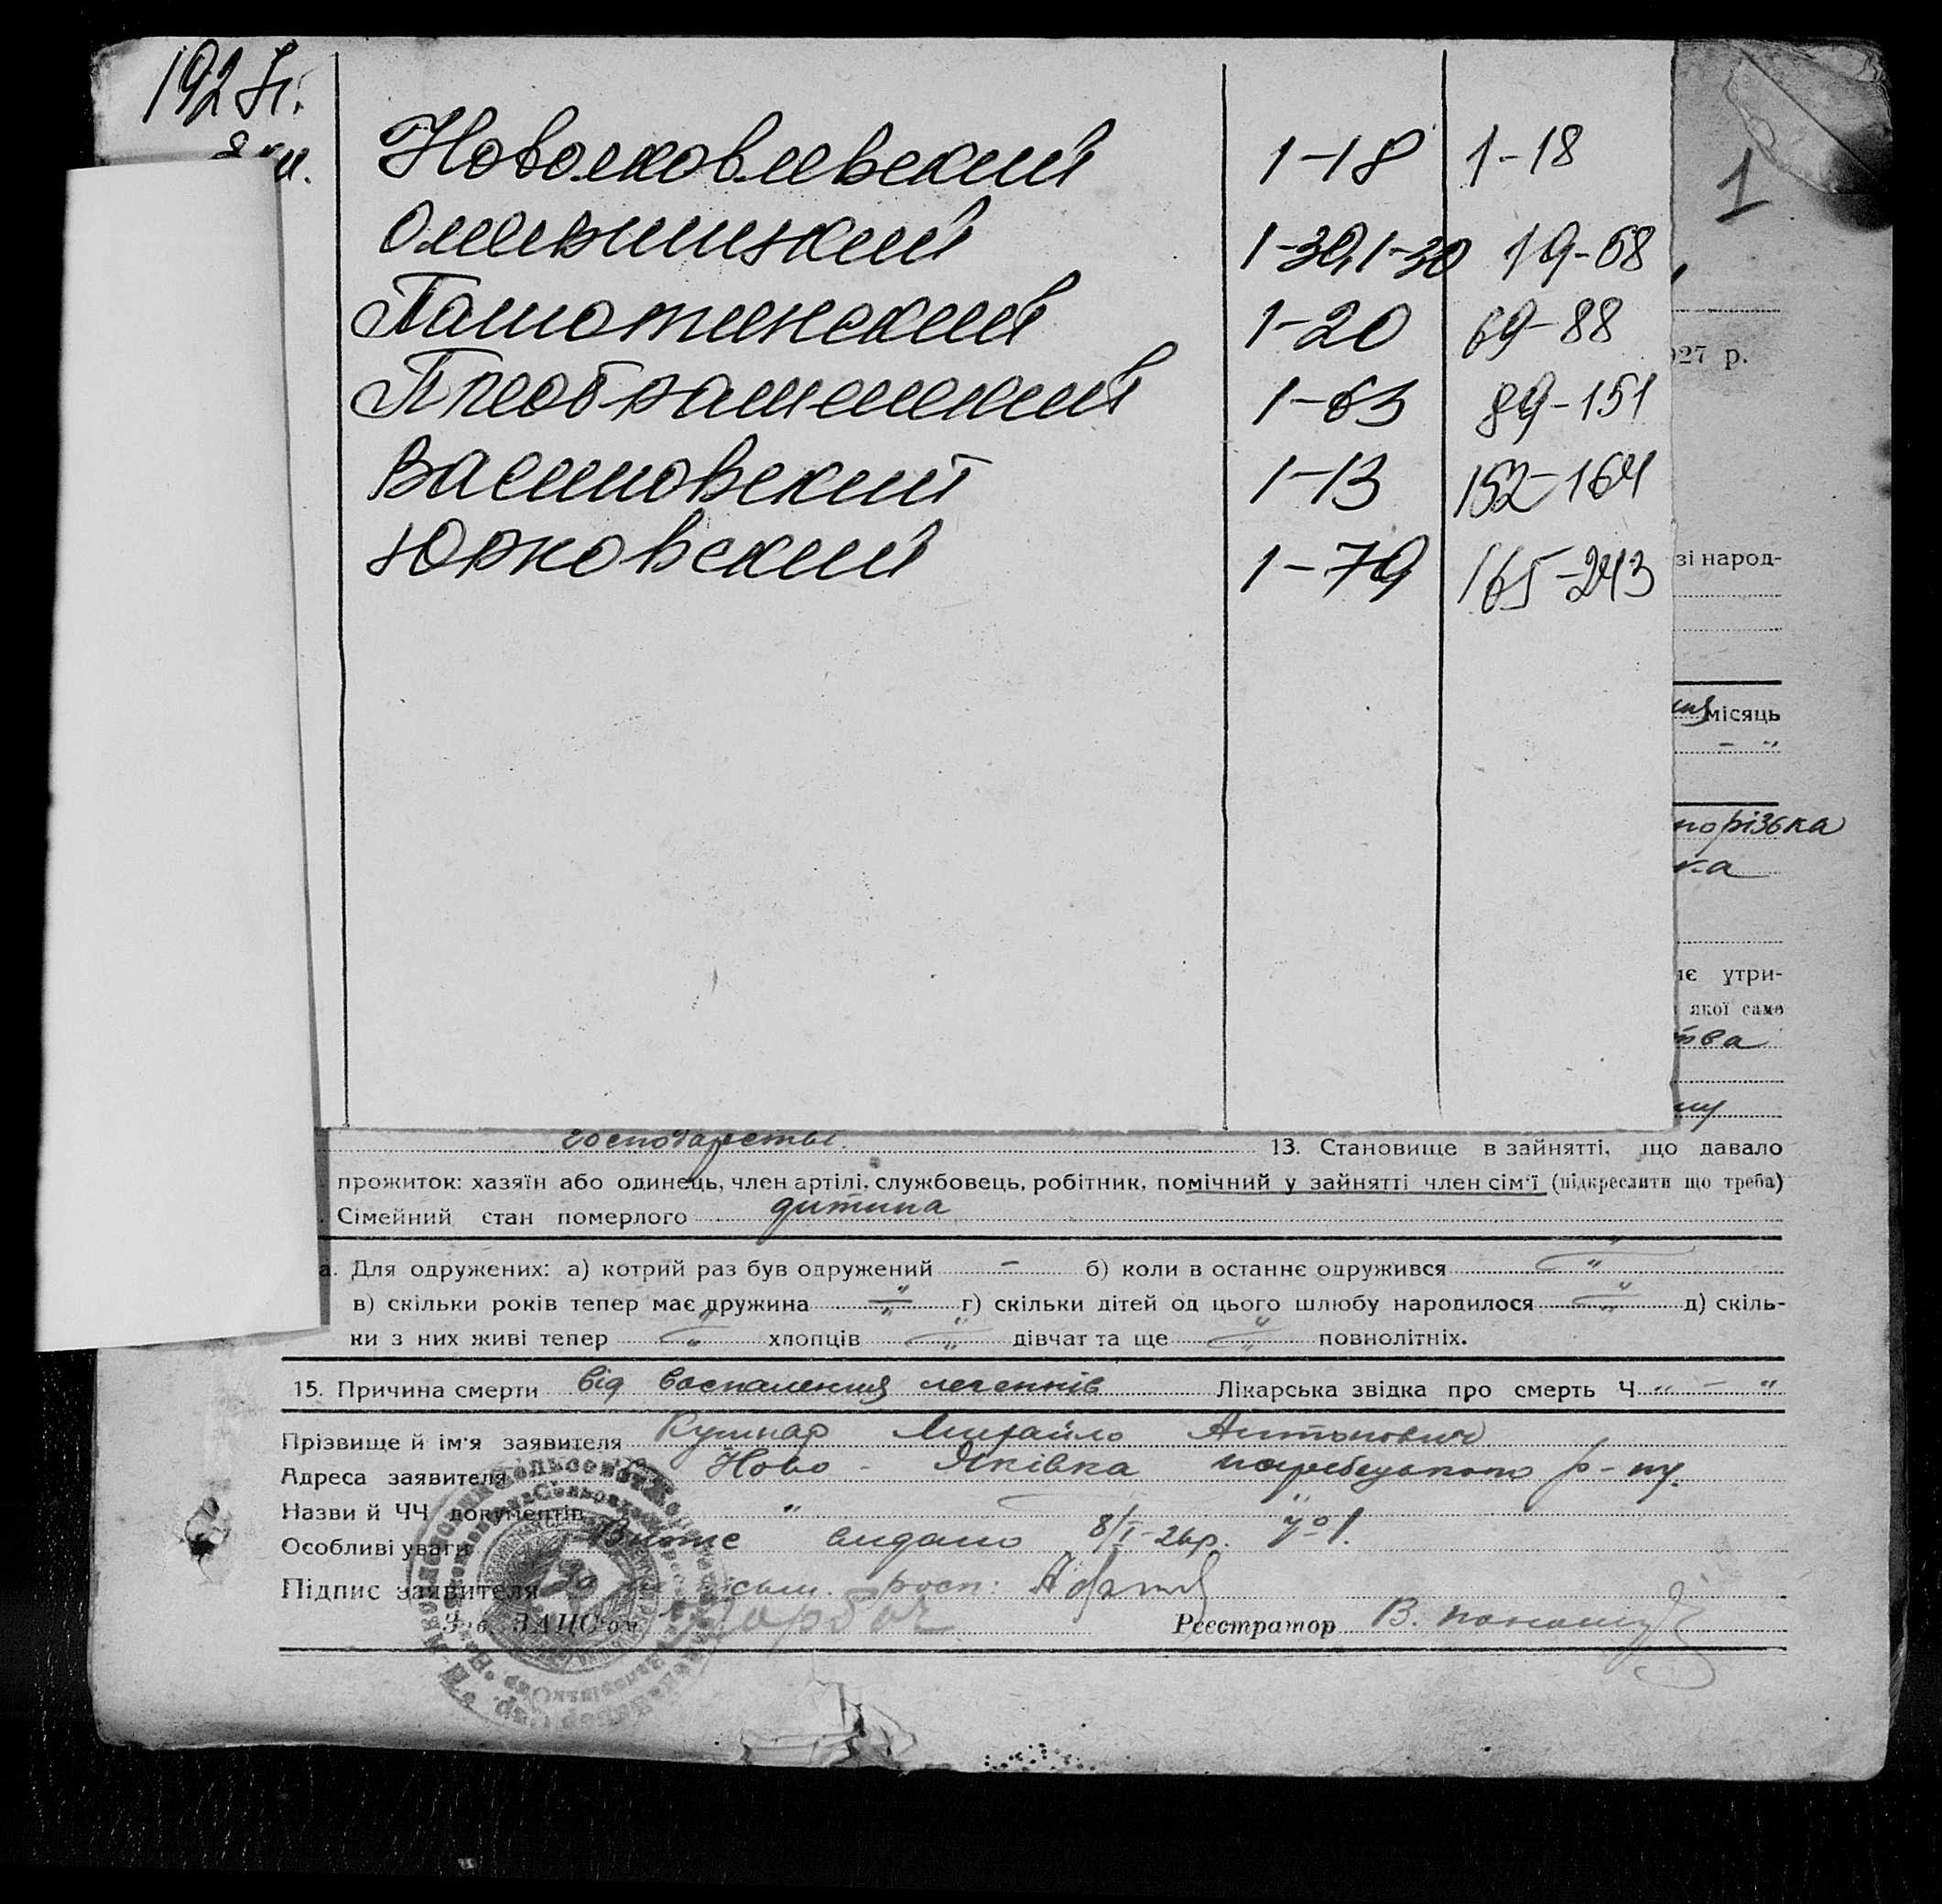 1927г.
Новояковлевский 1-18 1-18
1-30, 1-30 19-68
1-20 69-88
Преображенский 1-63 89-151
Васиновский 1-13 152-164
Юрковский 1-79 165-243
1
927 р.
зі народ-
місяць
порізька
ка
нє утри-
якої саме
тва
господарстві. 13. Становище в зайнятті, що давало
прожиток: хазяїн або одинець, член артілі, службовець, робітник, помічний у зайнятті член сім'ї (підкреслити що треба)
Сімейний стан померлого дитина
а. Для одружених: а) котрий раз був одружений — б) коли в останнє одружився „
в) скільки років тепер має дружина „ г) скільки дітей од цього шлюбу народилося „ д) скіль-
ки з них живі тепер „ хлопців „ дівчат та ще „ повнолітніх.
15. Причина смерти від воспаления легенків Лікарська звідка про смерть Ч. „ — "
Прізвище й ім'я заявителя Кушнар Михайло Антонович
Адреса заявителя Ново-Яківка р-ну.
Назви й ЧЧ документів " "
Особливі уваги видано 8/I-26р. № 1.
Підпис заявителя росп:
Зав. ЗАЦС'ом Горбач Реєстратор В.